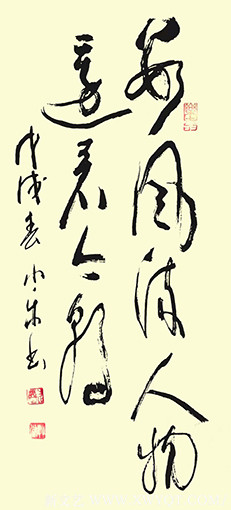 数风流人物
还看今朝
戊戌春小朱书